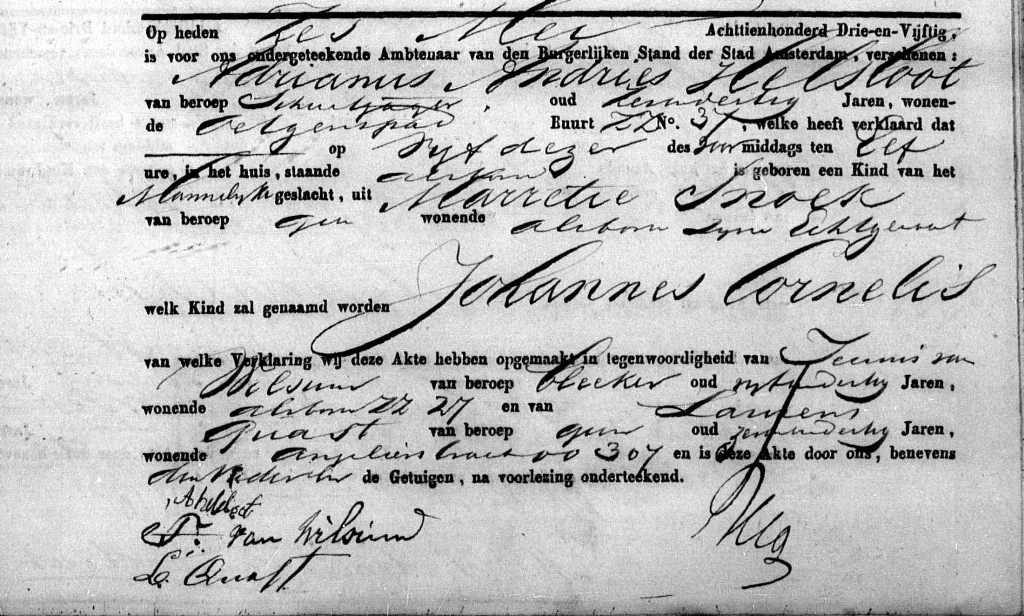 Op heden Zes Mei Achttienhonderd Drie-en-Vijftig,
is voor ons ondergeteekende Ambtenaar van den Burgerlijken Stand der Stad Amsterdam, verschenen:
Adrianus Andries Helsloot
van beroep oud Jaren, wonen-
de Buurt ZZ No. 37, welke heeft verklaard dat
op Vyf dezer des voor middags ten Elf
ure, in het huis, staande alsboven is geboren een Kind van het
Mannelyke geslacht, uit Marretie Snoek
van beroep geen wonende alsboven zyne Echtgenoot
welk Kind zal genaamd worden Johannes Cornelis
van welke Verklaring wij deze Akte hebben opgemaakt in tegenwoordigheid van Teunis van
Wilsum van beroep bleeker oud Jaren,
wonende alsboven ZZ 27 en van Laurens
Quast van beroep geen oud Jaren,
wonende Angelierstraat OO 307 en is deze Akte door ons, benevens
den Vader en de Getuigen, na voorlezing onderteekend.
T. van Wilsum
L. Quast